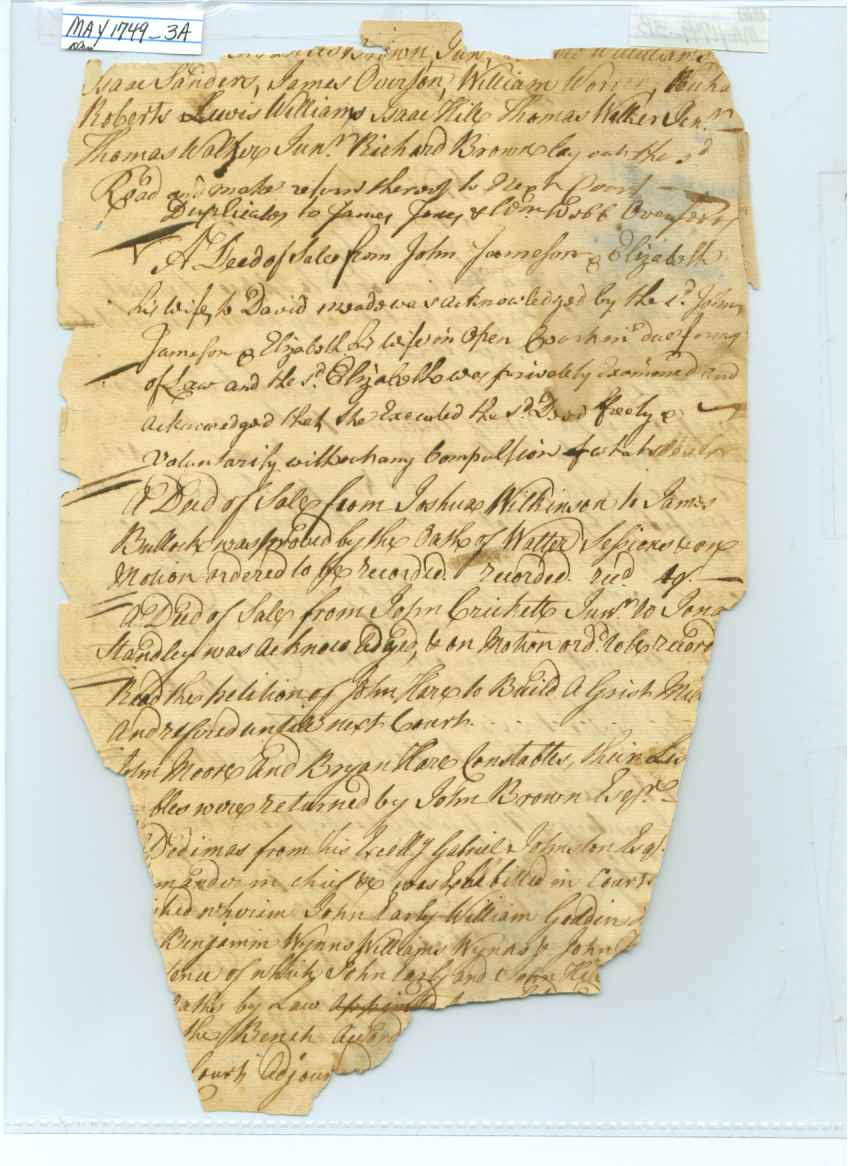 MAY 1749_3A
Brown, Jun. Williams
Isaac Sanders, James Overson, William Worren, Richa
Roberts Lewis Williams Isaac Hill Thomas Walker Sen.r
Thomas Walker Jun.r Richard Brown lay out the s.d
Road and make return thereof to Next Court
Duplicates to James Jones & W.m Webb Overseers
A Deed of Sale from John Jameson & Elizabeth
his wife to David meads was acknowledged by the s.d John
Jameson & Elizabeth his wife in open Court in due form
of Law and the s.d Elizabeth was privately Examined and
acknowedged that she Executed the s.d Deed freely &
Voluntarily without any Compulsion of what
A Deed of Sale from Joshua Wilkinson to James
Bullock was proved by the Oath of Walter Sessions & on
Motion ordered to be recorded. recorded.
A Deed of Sale from John Crickett Jun.r to Jona
Standley was acknowledged, & on Motion ord.d to be record
Read the petition of John Hare to Build A Grist Mill
And refered until next Court.
John Moore and Bryan Hare Constables, their Lis
bles were returned by John Brown Esq.r
Dedimas from his Excell.y Gabriel Johnston Esq.r
mander in chief &c was Exhibited in Court
wherein John Early William Goddin
Benjamin Wynns Williams Wynns & John
of which John Early and John Hil
oaths by Law
the Bench
Court Adjour